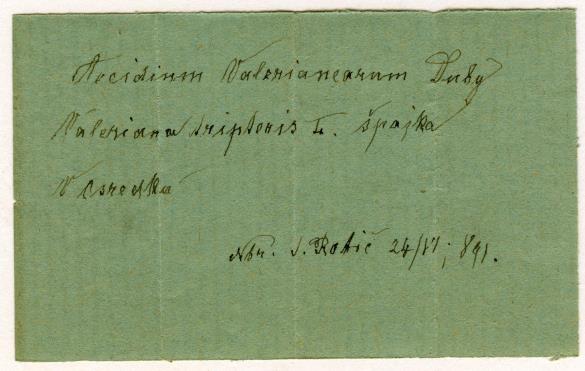 Aecidium Valerianearum Duby
Valeriana tripteris L. špajka
V Osredku
Nbr. S. Robič 24/VI; 891.